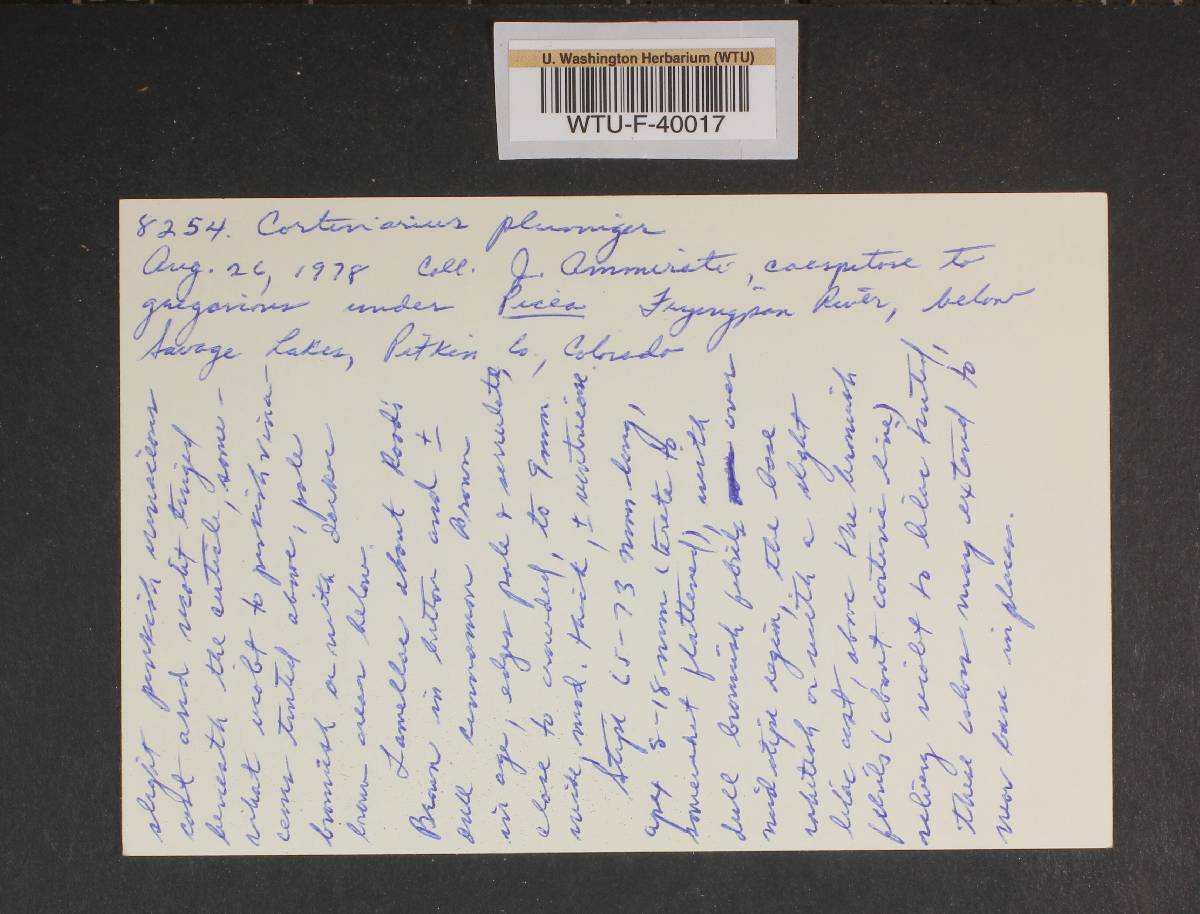 U. Washington Herbarium (WTU)
WTU-F-40017
8254. Cortinarius plumiger
Aug. 26, 1978 Coll. J. Ammirati, caespitose to
gregarious under Picea Fryingpan River, below
Savage Lakes, Pitkin Co., Colorado
slight pinkish vinaceous
cast and violet tinged
beneath the cuticle, some-
what violet to pinkish vina-
ceous tinted above, pale
brownish or with darker
brown area below.
Lamellae about Rood's
Brown in button and ±
dull cinnamon Brown
in age, edges pale & serrulate,
close to crowded, to 9 mm
wide, mod. thick, ± ventricose.
Stipe 65-73 mm long,
apex 8-18 mm (terete to
somewhat flattened), with
dull brownish fibrils over
mid stipe region, the base
whitish or with a slight
lilac cast, above the brownish
fibrils (about cortina line)
silvery violet to lilac tinted,
these colors may extend to
near base in places.